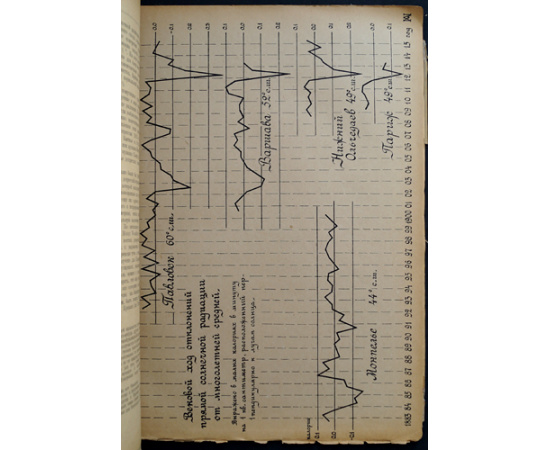 Вековой ход отклонений
прямой солнечной радиации
от многолетней средней.
Выражено в малых калориях в минуту
на 1 кв. сантиметр, расположенный пер-
пендикулярно к лучам солнца.
Павловск 60° с.ш.
Варшава 52° с.ш.
Нижний
Ольчедаев 49° с.ш.
Париж 49° с.ш.
Монпелье 44° с.ш.
калории
0.1
0.0
-0.1
1883 84 85 86 87 88 89 90 91 92 93 94 95 96 97 98 99 1900 01 02 03 04 05 06 07 08 09 10 11 12 13 14 15 год